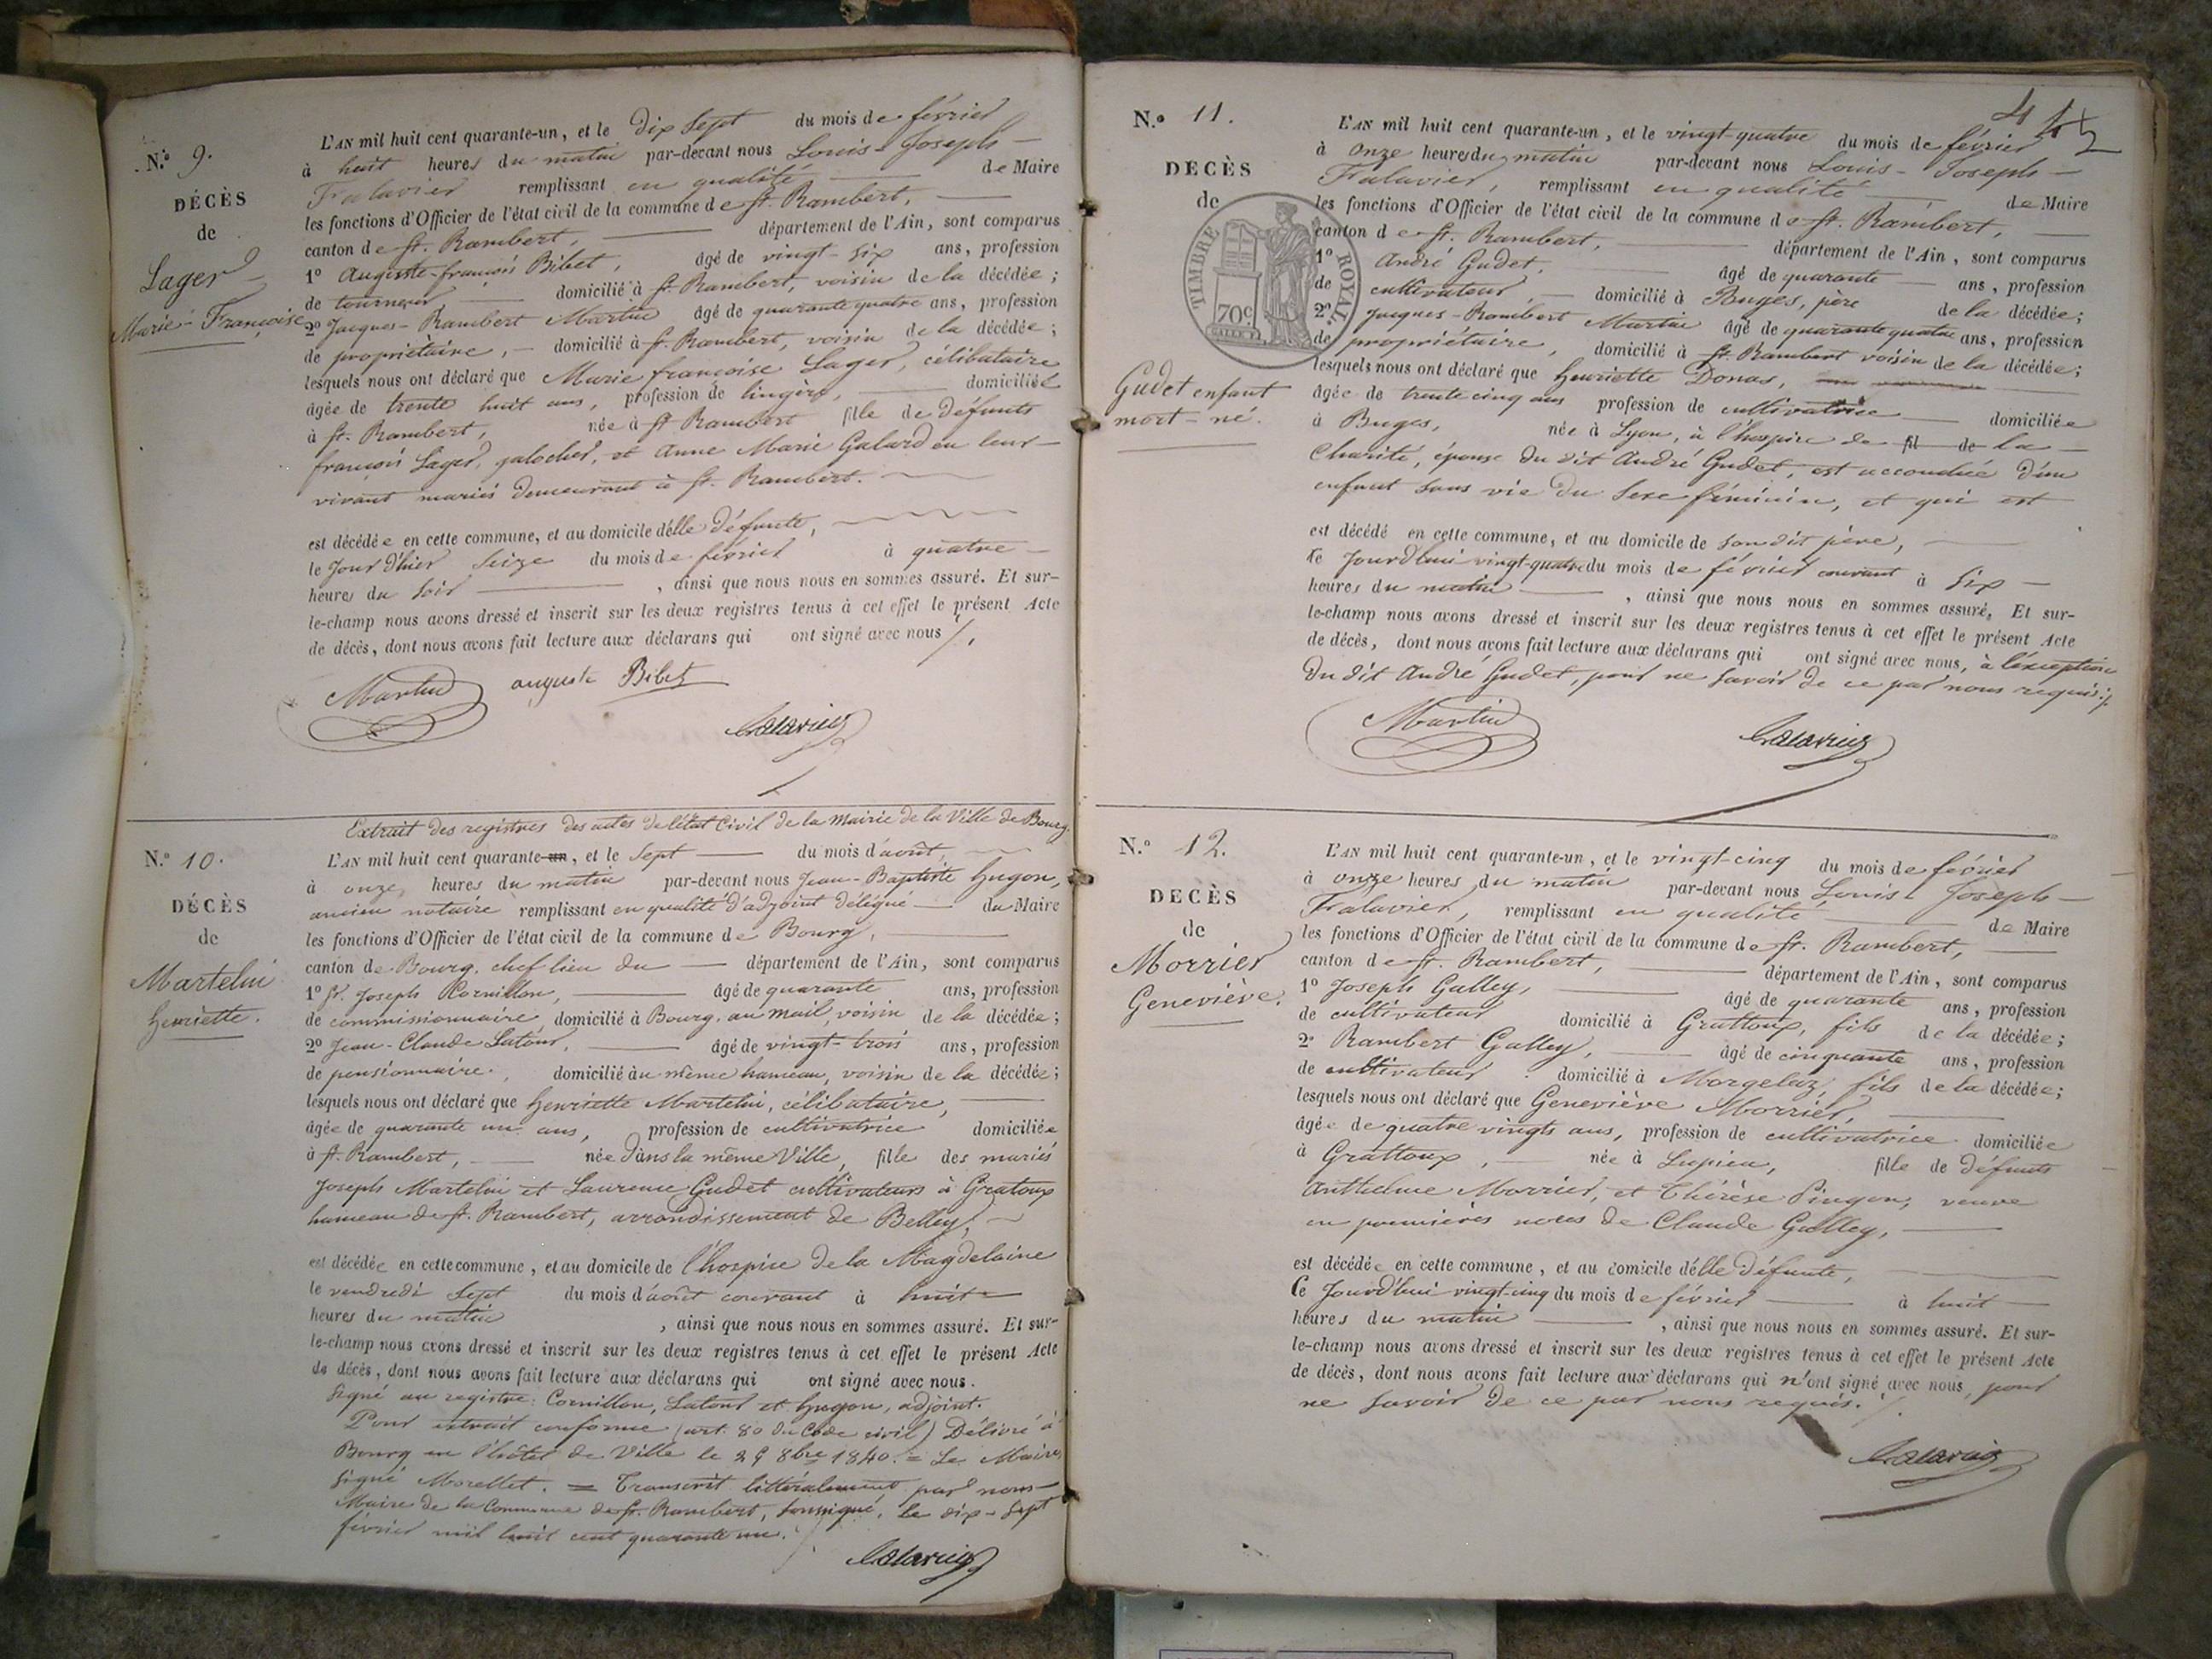 N.º 9.
DÉCÈS
de
Lager
Marie-Françoise
L'AN mil huit cent quarante-un, et le dix sept du mois de février
à huit heures du matin par-devant nous Louis-Joseph
Falavier remplissant en qualité de Maire
les fonctions d'Officier de l'état civil de la commune de St. Rambert,
canton de St. Rambert, département de l'Ain, sont comparus
1º Auguste-françois Bibet, âgé de vingt-six ans, profession
de tourneur, domicilié à St. Rambert, voisin de la décédée;
2º Jacques-Rambert Martin âgé de quarante quatre ans, profession
de propriétaire, domicilié à St. Rambert, voisin de la décédée;
lesquels nous ont déclaré que Marie françoise Lager, célibataire
âgée de trente huit ans, profession de lingère, domiciliée
à St. Rambert, née à St Rambert fille de défunts
françois Lager, galocher, et Anne Marie Galard en leur
vivant mariés demeurant à St. Rambert.
est décédée en cette commune, et au domicile d'elle défunte,
le jour d'hier seize du mois de février à quatre
heures du soir, ainsi que nous nous en sommes assuré. Et sur-
le-champ nous avons dressé et inscrit sur les deux registres tenus à cet effet le présent Acte
de décès, dont nous avons fait lecture aux déclarans qui ont signé avec nous /.
Martin auguste Bibet
Falavier
Extrait des registres des actes de l'état Civil de la Mairie de la Ville de Bourg.
N.º 10.
DÉCÈS
de
Martelin
henriette.
L'AN mil huit cent quarante-un, et le sept du mois d'août,
à onze heures du matin par-devant nous Jean-Baptiste hugon,
ancien notaire remplissant en qualité d'adjoint délégué du Maire
les fonctions d'Officier de l'état civil de la commune de Bourg,
canton de Bourg, chef lieu du département de l'Ain, sont comparus
1º Sr. Joseph Cornillon, âgé de quarante ans, profession
de commissionnaire domicilié à Bourg, au mail, voisin de la décédée;
2º Jean-Claude Latour, âgé de vingt-trois ans, profession
de pensionnaire, domicilié au même hameau, voisin de la décédée;
lesquels nous ont déclaré que henriette Martelin, célibataire,
âgée de quarante un ans, profession de cultivatrice domiciliée
à St. Rambert, née dans la même Ville, fille des mariés
Joseph Martelin et Laurence Gudet cultivateurs à Gratoux
hameau de St. Rambert, arrondissement de Belley,
est décédée en cette commune, et au domicile de l'hospice de la Magdelaine
le vendredi sept du mois d'août courant à huit
heures du matin, ainsi que nous nous en sommes assuré. Et sur-
le-champ nous avons dressé et inscrit sur les deux registres tenus à cet effet le présent Acte
de décès, dont nous avons fait lecture aux déclarans qui ont signé avec nous.
Signé au registre: Cornillon, Latour et hugon, adjoint.
Pour extrait conforme (art. 80 du Code civil) Délivré à
Bourg en l'hôtel de Ville le 29 8bre 1840. = Le Maire
signé Morellet. = Transcrit littéralement par nous
Maire de la Commune de St. Rambert, soussigné, le dix-sept
février mil huit cent quarante un.
Falavier
N.º 11.
DECÈS
de
TIMBRE ROYAL
70c
Gudet enfant
mort-né.
L'AN mil huit cent quarante-un, et le vingt-quatre du mois de février
à onze heures du matin par-devant nous Louis-Joseph
Falavier, remplissant en qualité de Maire
les fonctions d'Officier de l'état civil de la commune de St. Rambert,
canton de St. Rambert, département de l'Ain, sont comparus
1º André Gudet, âgé de quarante ans, profession
de cultivateur, domicilié à Buges, père de la décédée;
2º Jacques-Rambert Martin âgé de quarante quatre ans, profession
de propriétaire, domicilié à St. Rambert voisin de la décédée;
lesquels nous ont déclaré que henriette Donas,
âgée de trente cinq ans profession de cultivatrice domiciliée
à Buges, née à Lyon, à l'hospice de fil de la
Charité, épouse du dit André Gudet, est accouchée d'un
enfant sans vie du sexe féminin, et qui est
est décédé en cette commune, et au domicile de son dit père,
le jourd'hui vingt-quatre du mois de février courant à six
heures du matin, ainsi que nous nous en sommes assuré. Et sur-
le-champ nous avons dressé et inscrit sur les deux registres tenus à cet effet le présent Acte
de décès, dont nous avons fait lecture aux déclarans qui ont signé avec nous, à l'exception
du dit André Gudet, pour ne savoir de ce par nous requis./.
Martin
Falavier
N.º 12.
DECÈS
de
Morrier
Geneviève.
L'AN mil huit cent quarante-un, et le vingt-cinq du mois de février
à onze heures du matin par-devant nous Louis Joseph
Falavier, remplissant en qualité de Maire
les fonctions d'Officier de l'état civil de la commune de St. Rambert,
canton de St. Rambert, département de l'Ain, sont comparus
1º Joseph Galley, âgé de quarante ans, profession
de cultivateur domicilié à Grattoux, fils de la décédée;
2º Rambert Galley, âgé de cinquante ans, profession
de cultivateur domicilié à Morgelaz, fils de la décédée;
lesquels nous ont déclaré que Geneviève Morrier,
âgée de quatre vingts ans, profession de cultivatrice domiciliée
à Grattoux, née à Lupieu, fille de défunts
Anthelme Morrier, et Thérèse Pingon, veuve
en premières noces de Claude Galley,
est décédée en cette commune, et au domicile d'elle défunte,
Ce jourd'hui vingt-cinq du mois de février à huit
heures du matin, ainsi que nous nous en sommes assuré. Et sur-
le-champ nous avons dressé et inscrit sur les deux registres tenus à cet effet le présent Acte
de décès, dont nous avons fait lecture aux déclarans qui n'ont signé avec nous, pour
ne savoir de ce par nous requis./.
Falavier